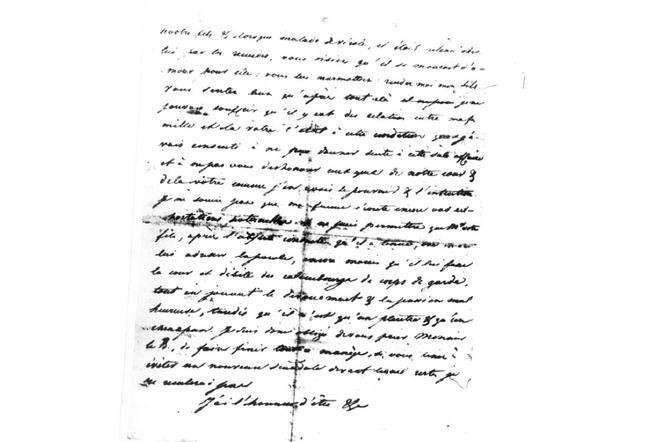 votre fils &, lorsque malade de vérole, il était retenu chez
lui par les remèdes, vous disiez qu'il se mourait d'a-
mour pour elle; vous lui marmottiez: rendez moi mon fils.
Vous sentez bien qu'après tout cela je ne
pouvais souffrir qu'il y eut des relation entre ma fa-
mille et la votre. C'était à cette condition que j'a-
vais consenti à ne pas donner suite à cette sale affaire
et à ne pas vous deshonorer aux yeux de notre cour &
de la votre comme j'en avais le pouvoir & l'intention
Je ne me soucie pas que ma femme écoute encore vos ex-
hortations paternelles Je ne puis permettre que Mr votre
fils, après l'abjecte conduite qu'il a tenue,
lui adresser la parole, encore moins qu'il lui fasse
la cour et débite des calembourgs de corps de garde
tout en jouant le dévouement & la passion mal
heureuse, tandis qu'il n'est qu'un pleutre & qu'un
chenapan. Je suis donc obligé de vous prier Monsieur
le B, de faire finir tout ce manège, si vous tenez à
éviter un nouveau scandale devant lequel certes je
ne reculerai pas
J'ai l'honneur d'être &c